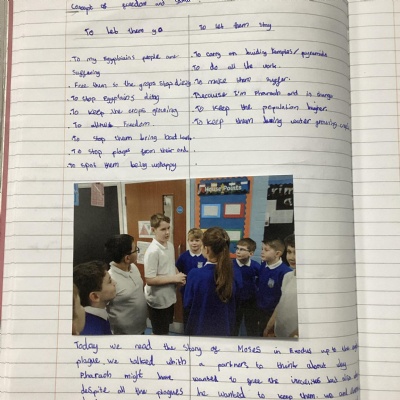 Concept of freedom and
To let them go
To let them stay
To my Egyptians people are
suffering
. Free them so the crops stop dieing
. To stop Egyptains dieing
. To keep the crops growing
. To Freedom.
. To stop them bring bad luck
. To stop plages from their god.
. To stop them being unhappy
. To carry on building temples/pyramids
. To do all the work.
. To make them suffer.
. Because I'm Pharaoh and in charge
. To keep the population higher
. To keep them water growing
House Points
Today we read the story of Moses in Exodus up to the
plague. we talked with a partner to think about why
Pharaoh might have wanted to free the but
despite all the plagues he wanted to keep them. we